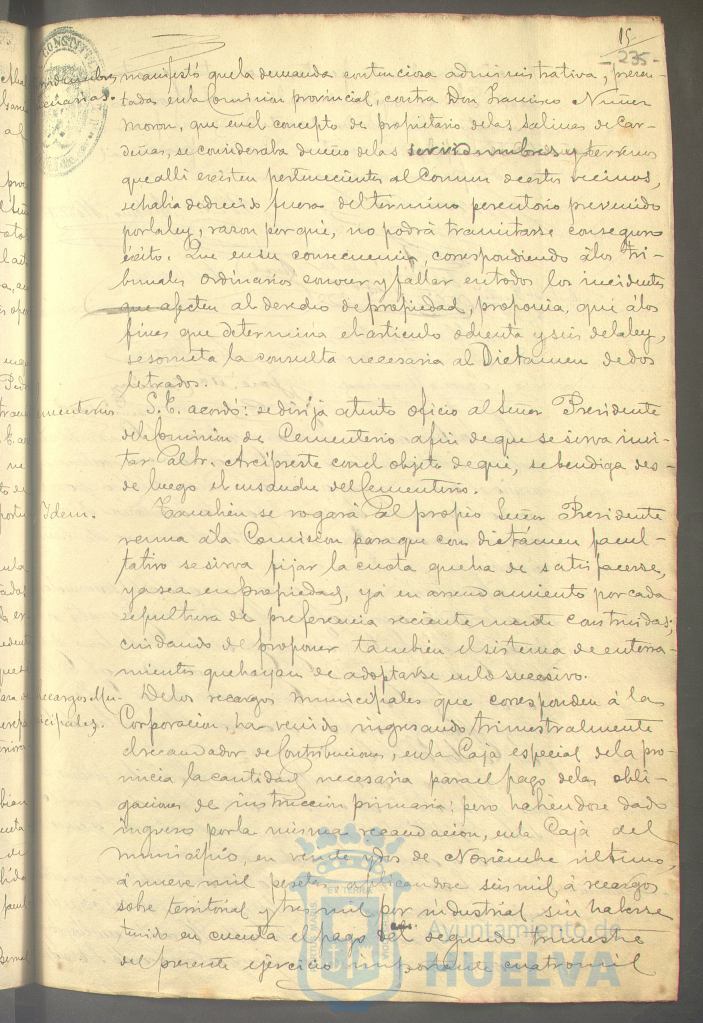 15
- 235 -
manifestó que la demanda contenciosa administrativa, presen-
tada en la Comision provincial, contra Don Francisco Nuñez
Moron, que en el concepto de propietario de las salinas de Car-
deñas, se consideraba dueño de las servidumbres y terrenos
que alli existen pertenecientes al Comun de estos vecinos,
se habia deducido fuera del termino perentorio prevenido
por la ley, razon por que, no podrá tramitarse con seguro
éxito. Que en su consecuencia, correspondiendo á los Tri-
bunales ordinarios conocer y fallar en todos los incidentes
que afecten al derecho de propiedad, proponia, que á los
fines que determina el articulo ochenta y seis de la ley,
se someta la consulta necesaria al Dictamen de dos
letrados.
ementerio S.E. acordó: se dirija atento oficio al Señor Presidente
de la Comision de Cementerio a fin de que se sirva invi-
tar al Sr. Arcipreste con el objeto de que, se bendiga des-
de luego el ensanche del Cementerio.
Idem. Tambien se rogará al propio Señor Presidente
reuna á la Comision para que con dictámen facul-
tativo se sirva fijar la cuota que ha de satisfacerse,
ya sea en propiedad, yá en arrendamiento por cada
sepultura de preferencia recientemente construidas;
cuidando de proponer tambien el sistema de enterra-
mientos que hayan de adoptarse en lo sucesivo.
recargos Mu- De los recargos municipales que corresponden á la
cipales. Corporacion, ha venido ingresando trimestralmente
el recaudador de Contribuciones, en la Caja especial de la pro-
vincia la cantidad necesaria para el pago de las obli-
gaciones de instruccion primaria; pero habiendose dado
ingreso por la misma recaudacion, en la Caja del
municipio, en veinte y dos de Noviembre último,
á nueve mil pesetas aplicandose seis mil á recargos
sobre territorial y tres mil por industrial, sin haberse
tenido en cuenta el pago del segundo trimestre
del presente ejercicio importante cuatro mil
Ayuntamiento de
HUELVA